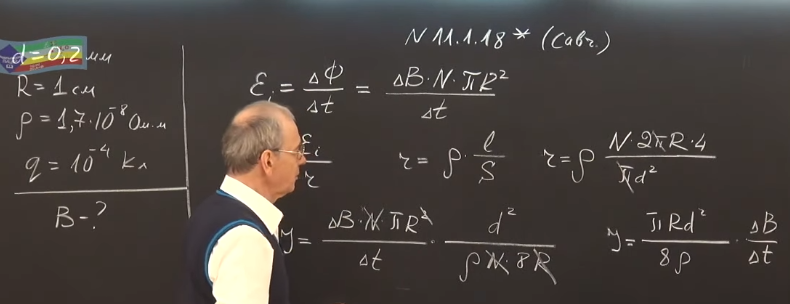 N 11.1.18* (Савч.)
d = 0,2 мм
R = 1 см
ρ = 1,7·10⁻⁸ Ом.м
q = 10⁻⁴ Кл
B - ?
ℰi = ΔΦ/Δt = ΔB·N·πR²/Δt
ℰi/r
r = ρ·l/S
r = ρ N·2πR·4/πd²
y = ΔB·N·πR²/Δt · d²/ρN·8R
y = πRd²/8ρ · ΔB/Δt